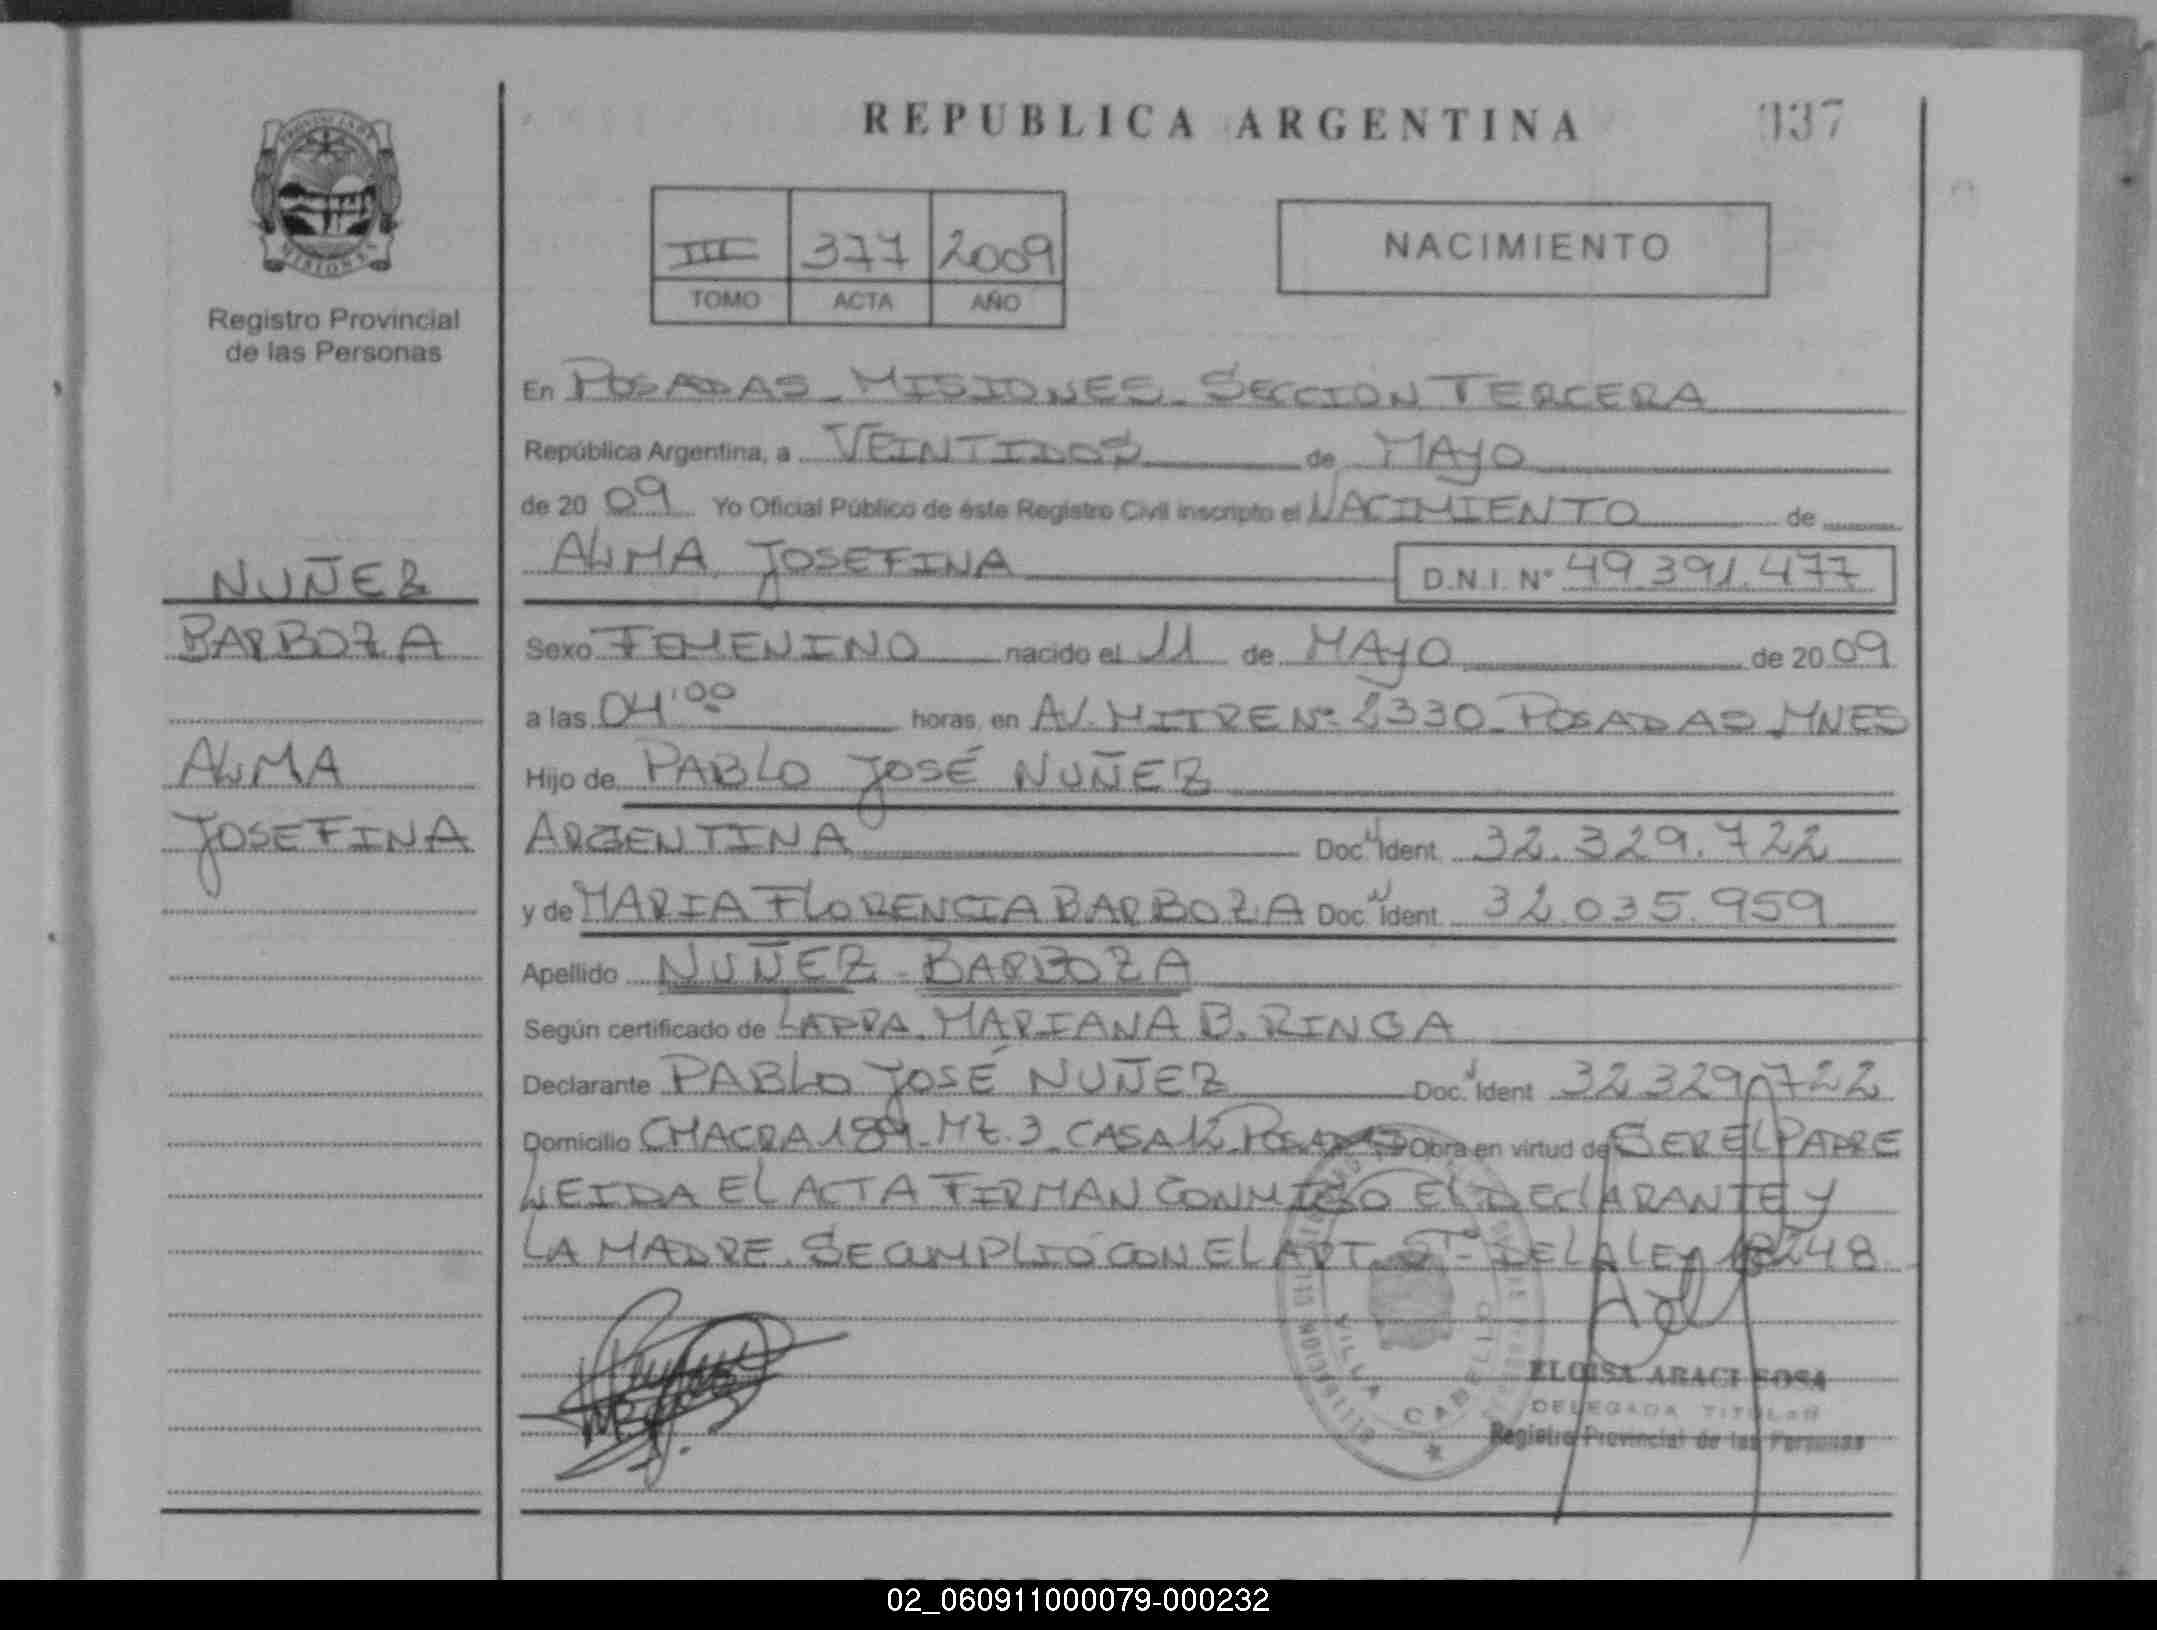 REPUBLICA ARGENTINA
337
PROVINCIA DE MISIONES
Registro Provincial
de las Personas
III 377 2009
TOMO ACTA AÑO
NACIMIENTO
En POSADAS - MISIONES - SECCION TERCERA
República Argentina, a VEINTIDOS de MAYO
de 2009 Yo Oficial Público de éste Registro Civil inscripto el NACIMIENTO de
ALMA JOSEFINA D.N.I. Nº 49.391.477
NUÑEZ
BARBOZA
ALMA
JOSEFINA
Sexo FEMENINO nacido el 11 de MAYO de 2009
a las 04'00 horas, en AV. MITRE Nº 2330 - POSADAS MNES
Hijo de PABLO JOSÉ NUÑEZ
ARGENTINA Doc. Ident. 32.329.722
y de MARIA FLORENCIA BARBOZA Doc. Ident. 32.035.959
Apellido NUÑEZ - BARBOZA
Según certificado de LA DRA. MARIANA B. RINGA
Declarante PABLO JOSÉ NUÑEZ Doc. Ident 32329722
Domicilio CHACRA 189 - MZ. 3 - CASA 12 POSADAS Obra en virtud de SER EL PADRE
LEIDA EL ACTA FIRMAN CONMIGO EL DECLARANTE Y
LA MADRE. SE CUMPLIO CON EL ART. 5º - DE LA LEY 18248
VILLA CABELLO
ELOISA ARACI SOSA
DELEGADA TITULAR
Registro Provincial de las Personas
02_060911000079-000232